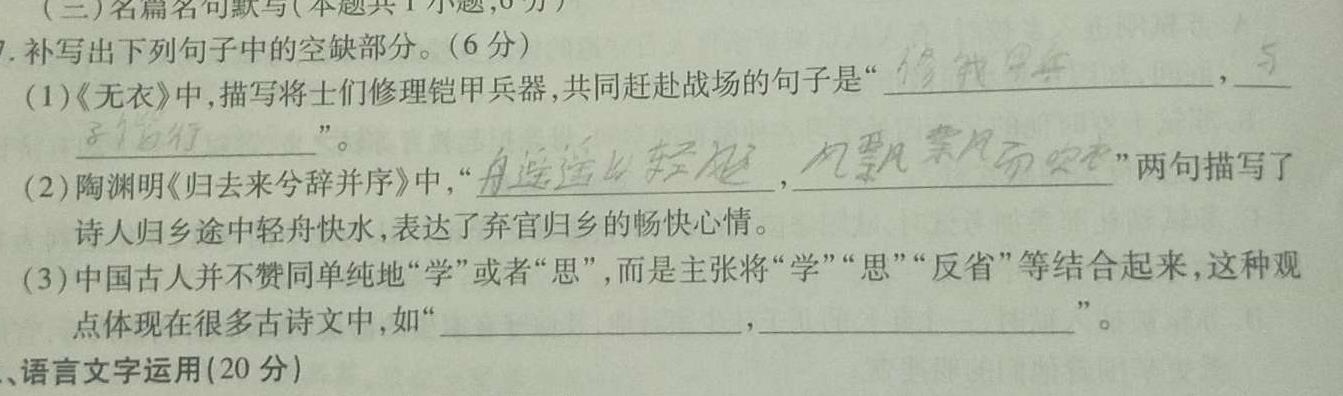 (三)名篇名句默写(本题共1小题,6分)
7.补写出下列句子中的空缺部分。(6分)
(1)《无衣》中,描写将士们修理铠甲兵器,共同赶赴战场的句子是“修我甲兵,与
子偕行”。
(2)陶渊明《归去来兮辞并序》中,“舟遥遥以轻飏,风飘飘而吹衣”两句描写了
诗人归乡途中轻舟快水,表达了弃官归乡的畅快心情。
(3)中国古人并不赞同单纯地“学”或者“思”,而是主张将“学”“思”“反省”等结合起来,这种观
点体现在很多古诗文中,如“ , ”。
、语言文字运用(20分)